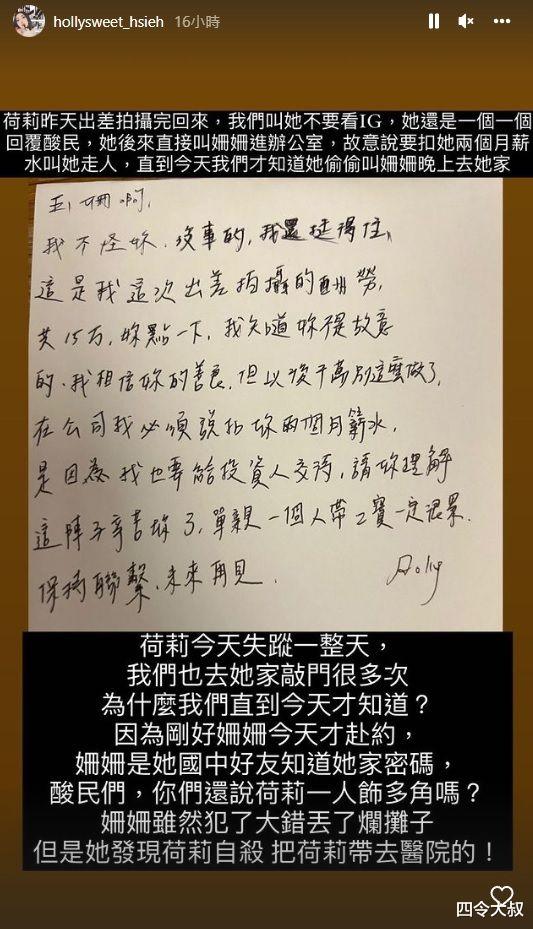 hollysweet_hsieh 16小時
荷莉昨天出差拍攝完回來，我們叫她不要看IG，她還是一個一個
回覆酸民，她後來直接叫姍姍進辦公室，故意說要扣她兩個月薪
水叫她走人，直到今天我們才知道她偷偷叫姍姍晚上去她家
姍啊，
我不怪妳．沒事的，我還挺得住，
這是我這次出差拍攝的酬勞，
共15万，妳點一下，我知道妳不是故意
的．我相信妳的善良．但以後千萬別這麼做了，
在公司我必須說扣妳兩個月薪水，
是因為我也要給投資人交待，請妳理解
這陣子辛苦妳了，單親一個人帶2寶一定很累．
保持聯繫．未來再見．
Holly
荷莉今天失蹤一整天，
我們也去她家敲門很多次
為什麼我們直到今天才知道？
因為剛好姍姍今天才赴約，
姍姍是她國中好友知道她家密碼，
酸民們，你們還說荷莉一人飾多角嗎？
姍姍雖然犯了大錯丟了爛攤子
但是她發現荷莉自殺 把荷莉帶去醫院的！
四令大叔